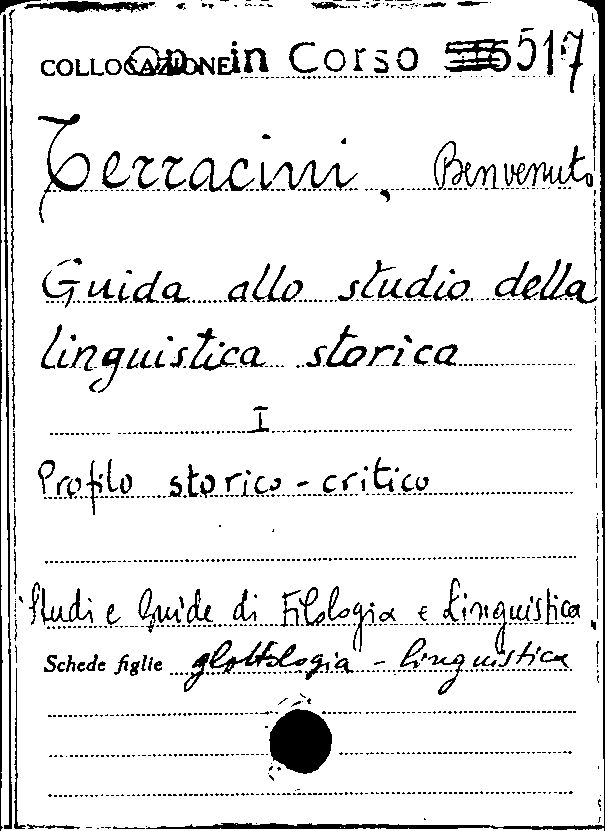 COLLOCAZIONE Op. in Corso 517
Terracini, Benvenuto
Guida allo studio della
linguistica storica
I
Profilo storico-critico
Studi e Guide di Filologia e Linguistica.
Schede figlie glottologia - linguistica